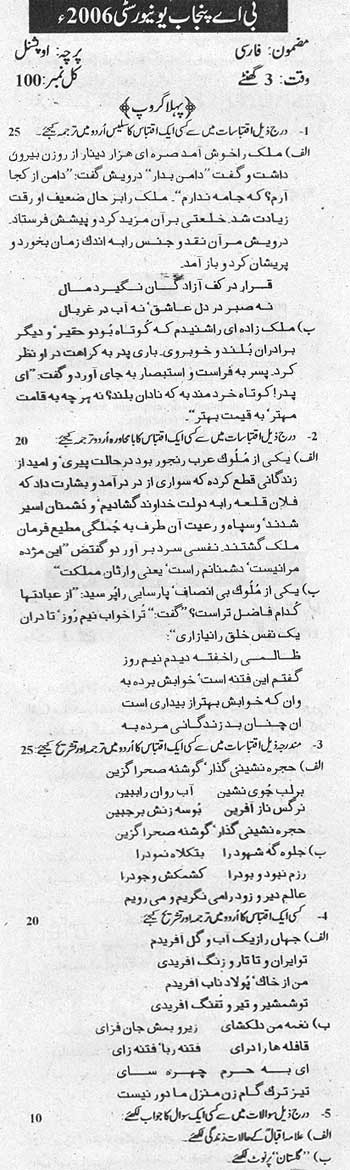 بی اے پنجاب یونیورسٹی 2006ء
مضمون: فارسی پرچہ: اوپشنل
وقت: 3 گھنٹے کل نمبر: 100
﴿پہلا گروپ﴾
1- درج ذیل اقتباسات میں سے کسی ایک اقتباس کا سلیس اُردو میں ترجمہ کیجئے۔ 25
الف) ملک راخوش آمد صرہ ای ہزار دینار از روزن بیرون
داشت و گفت "دامن بدار" درویش گفت: "دامن از کجا
آرم؟ کہ جامہ ندارم"۔ ملک رابر حال ضعیف او رقت
زیادت شد۔ خلعتی برآن مزید کرد و پیشش فرستاد۔
درویش مرآن نقد و جنس رابہ اندك زمان بخورد و
پریشان کرد و باز آمد۔
قرار درکف آزادگان نگیرد مال
نہ صبر در دل عاشق' نہ آب در غربال
ب) ملک زادہ ای راشنیدم کہ کوتاہ بُود و حقیر' و دیگر
برادران بُلند و خوبروی۔ باری پدر بہ کراہت در او نظر
کرد۔ پسر بہ فراست و استبصار بہ جای آورد و گفت: "ای
پدر! کوتاہ خردمند بہ کہ نادان بلند؟ نہ ہر چہ بہ قامت
مہتر' بہ قیمت بہتر"۔
2- درج ذیل اقتباسات میں سے کسی ایک اقتباس کا بامحاورہ اُردو ترجمہ کیجئے: 20
الف) یکی از مُلوك عرب رنجور بود درحالت پیری' و امید از
زندگانی قطع کردہ کہ سواری از در درآمد و بشارت داد کہ
فلان قلعہ رابہ دولت خداوند گشادیم' و دُشمنان اسیر
شدند' وسپاہ و رعیت آن طرف بہ جُملگی مطیع فرمان
ملک گشتند۔ نفسی سرد بر آور دو گفتص "این مژدہ
مرانیست' دشمنانم راست' یعنی وارثان مملکت"
ب) یکی از مُلوك بی انصاف' پارسایی راپُرسید: "از عبادتہا
کُدام فاضل تراست"؟ گفت: "تراخواب نیم رُوز' تادران
یک نفس خلق رانیازاری":
ظالمی راخفتہ دیدم نیم روز
گفتم این فتنہ است' خوابش بردہ بہ
وان کہ خوابش بہتر از بیداری است
ان چنان بدزندگانی مردہ بہ
3- مندرجہ ذیل اقتباسات میں سے کسی ایک اقتباس کا اُردو میں ترجمہ اور تشریح کیجئے: 25
الف) حجرہ نشینی گذار' گوشنہ صحراگزین
برلب جُوی نشین آب روان رابین
نرگس ناز آفرین بُوسہ زنش برجبین
حجرہ نشینی گذار' گوشنہ صحراگزین
ب) جلوہ گہ شہود را بتکلاہ نمودرا
رزم نبود و بودرا کشمکش وجودرا
عالم دیر و زود رامی نگریم و می رویم
4- کسی ایک اقتباس کا اُردو میں ترجمہ اور تشریح کیجئے: 20
الف) جہاں رازیک آب و گل آفریدم
توایران و تاتار و زنگ آفریدی
من از خاك' پُولاد ناب آفریدم
توشمشیر و تیر و تُفنگ آفریدی
ب) نغمہ من دلکشای زیروبمش جان فزای
قافلہ ہا رادرای فتنہ رُبا' فتنہ زای
ای بہ حرم چہرہ سای
تیز ترك گام زن منزل مادور نیست
5- درج ذیل سوالات میں سے کسی ایک سوال کا جواب لکھئے: 10
الف) علامہ اقبالؒ کے حالات زندگی لکھئے۔
ب) "گلستان" پر نوٹ لکھئے۔